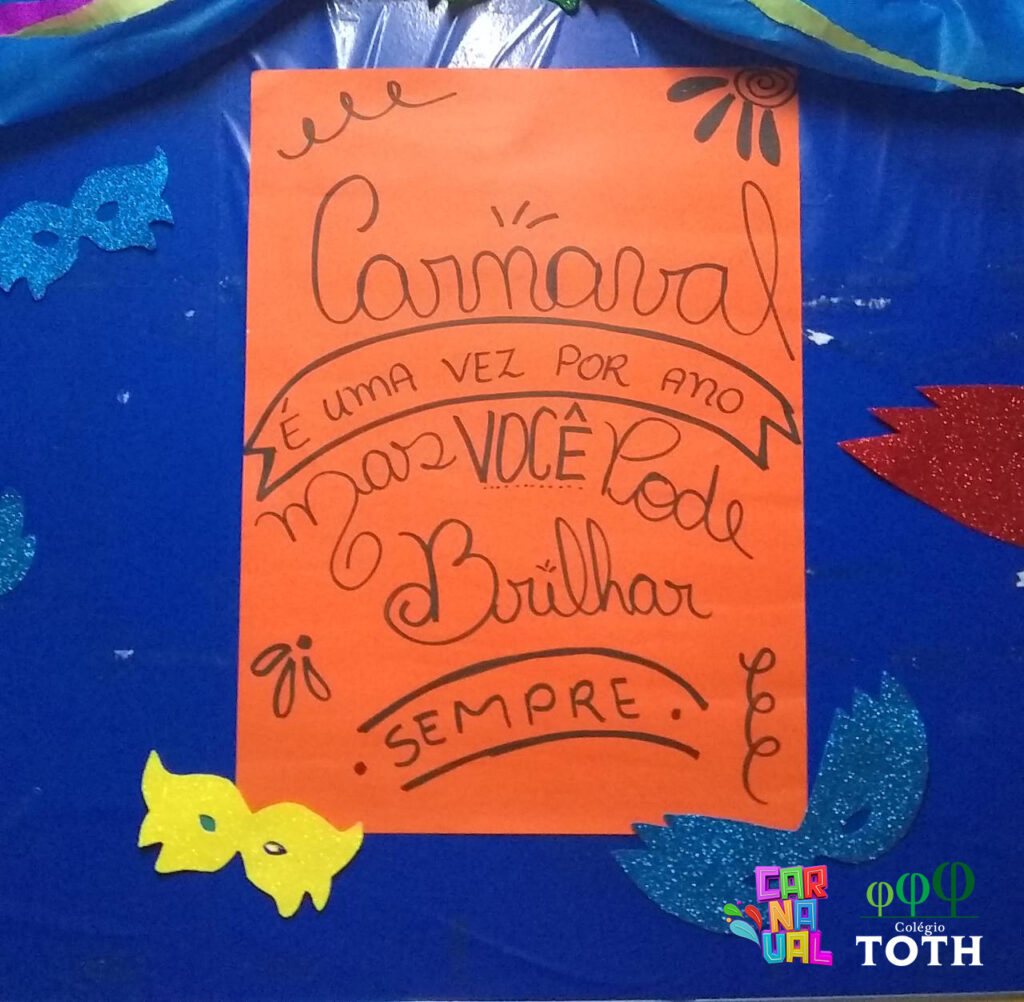 Carnaval
É UMA VEZ POR ANO
Mas VOCÊ Pode
Brilhar
SEMPRE.
gi
CAR
NA
VAL
φφφ
Colégio
TOTH